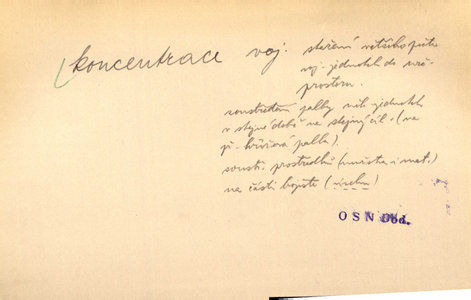 koncentrace voj. stažení většího počtu
voj. jednotek do
prostoru.
soustředění palby jednotek
v stejné době na stejný cíl. (na
př. křížová palba).
soust. prostředků (mat.)
na části bojiště
OSN Dod.